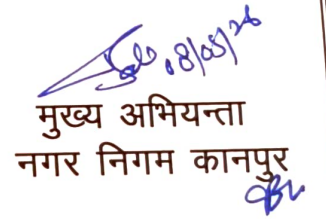 08/05/26
मुख्य अभियन्ता
नगर निगम कानपुर